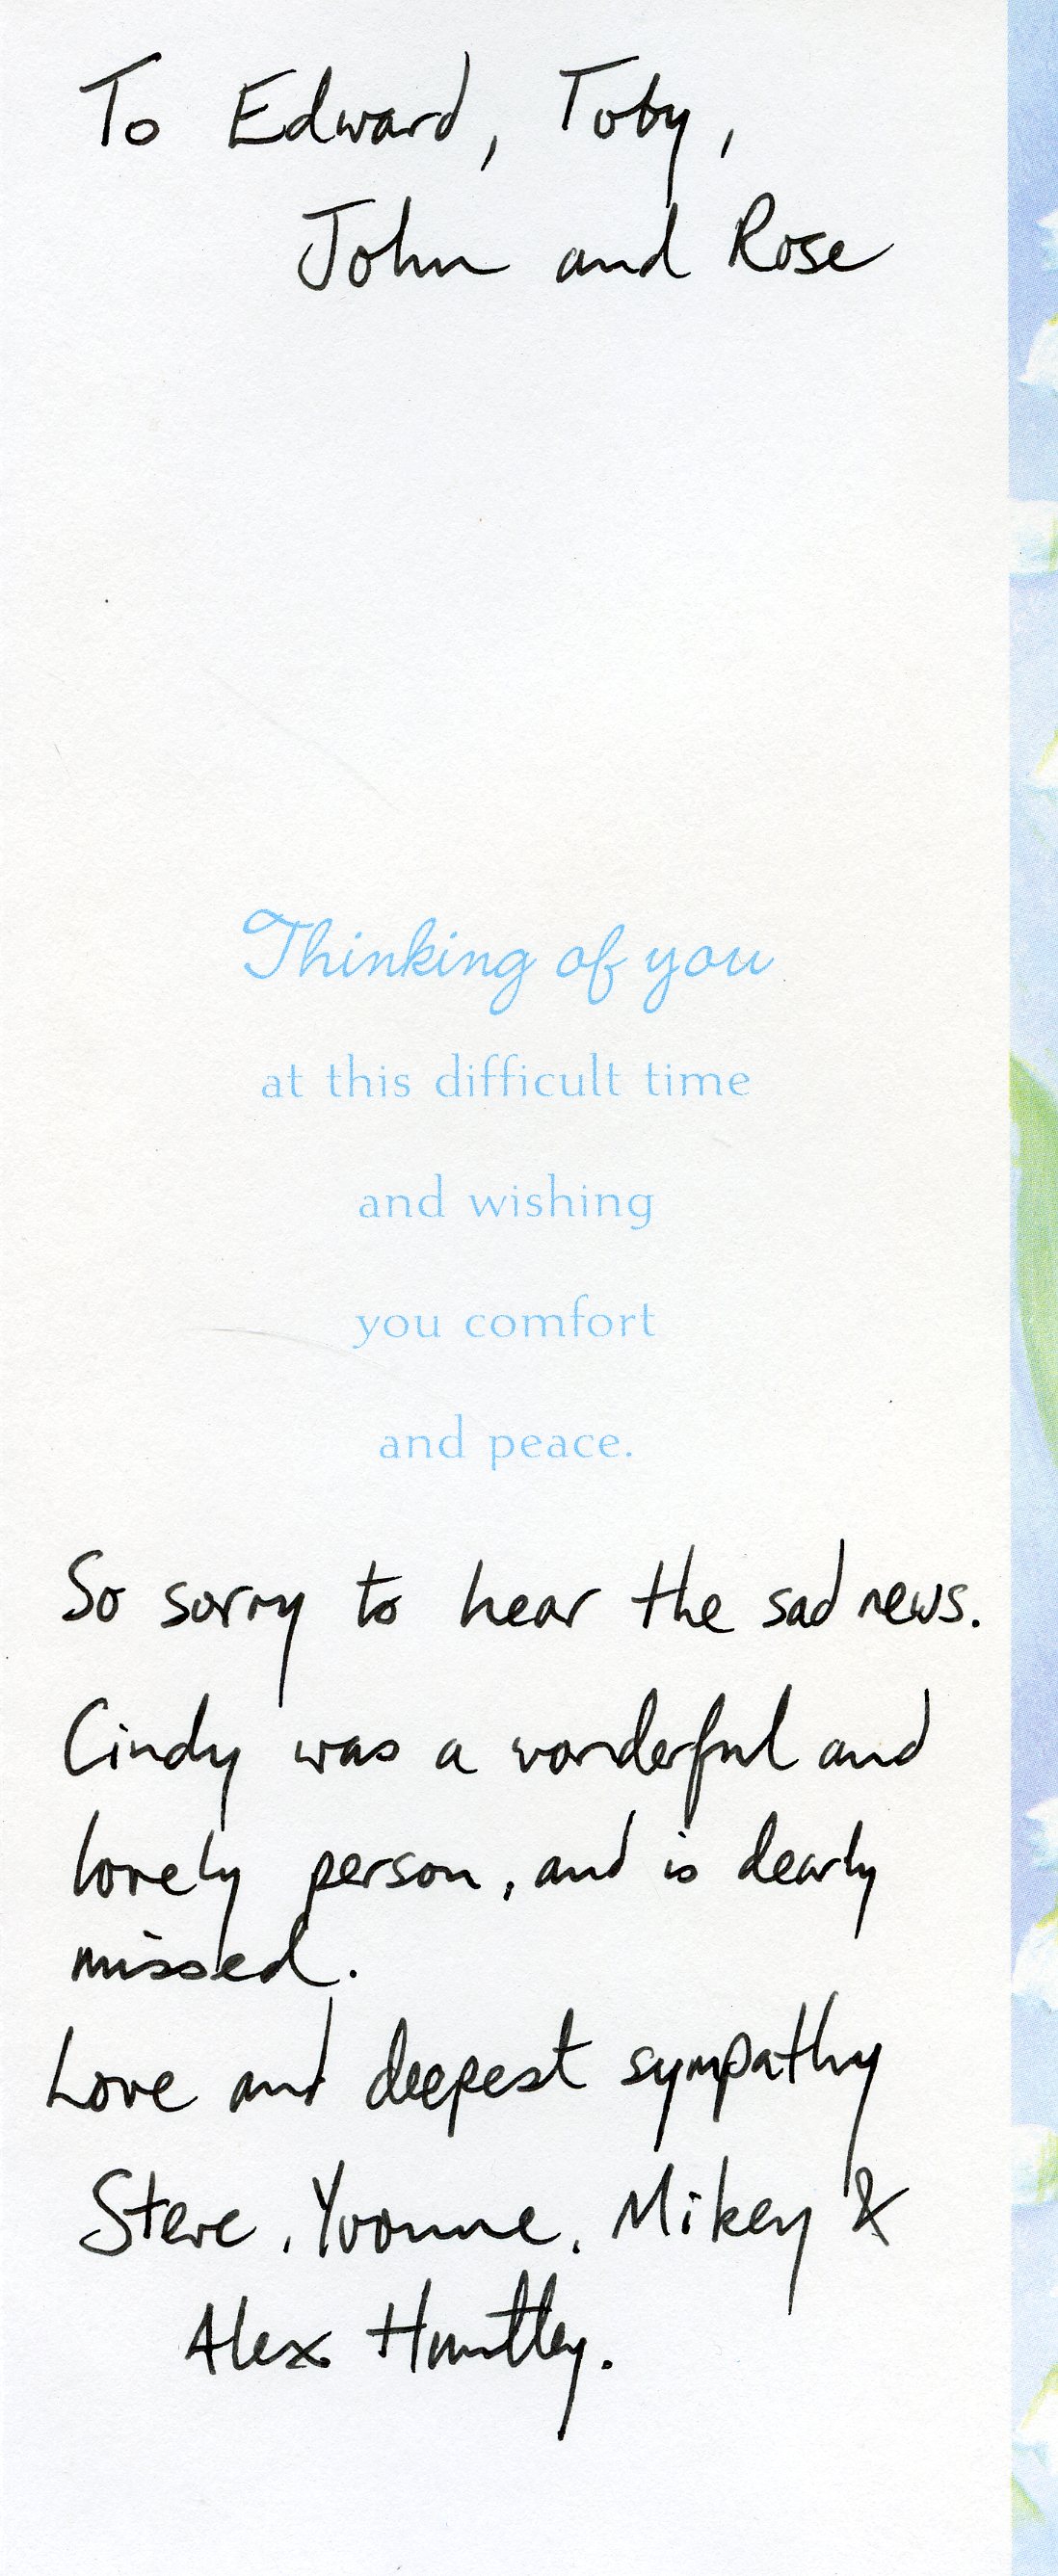 To Edward, Toby,
John and Rose
Thinking of you
at this difficult time
and wishing
you comfort
and peace.
So sorry to hear the sad news.
Cindy was a wonderful and
lovely person, and is dearly
missed.
Love and deepest sympathy
Steve, Yvonne, Mikey &
Alex Huntley.